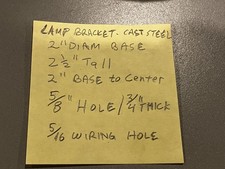 LAMP BRACKET - CAST STEEL
2" DIAM BASE
2 1/2" Tall
2" BASE to CenteR
5/8" HOLE / 3/4" THICK
5/16 WIRING HOLE